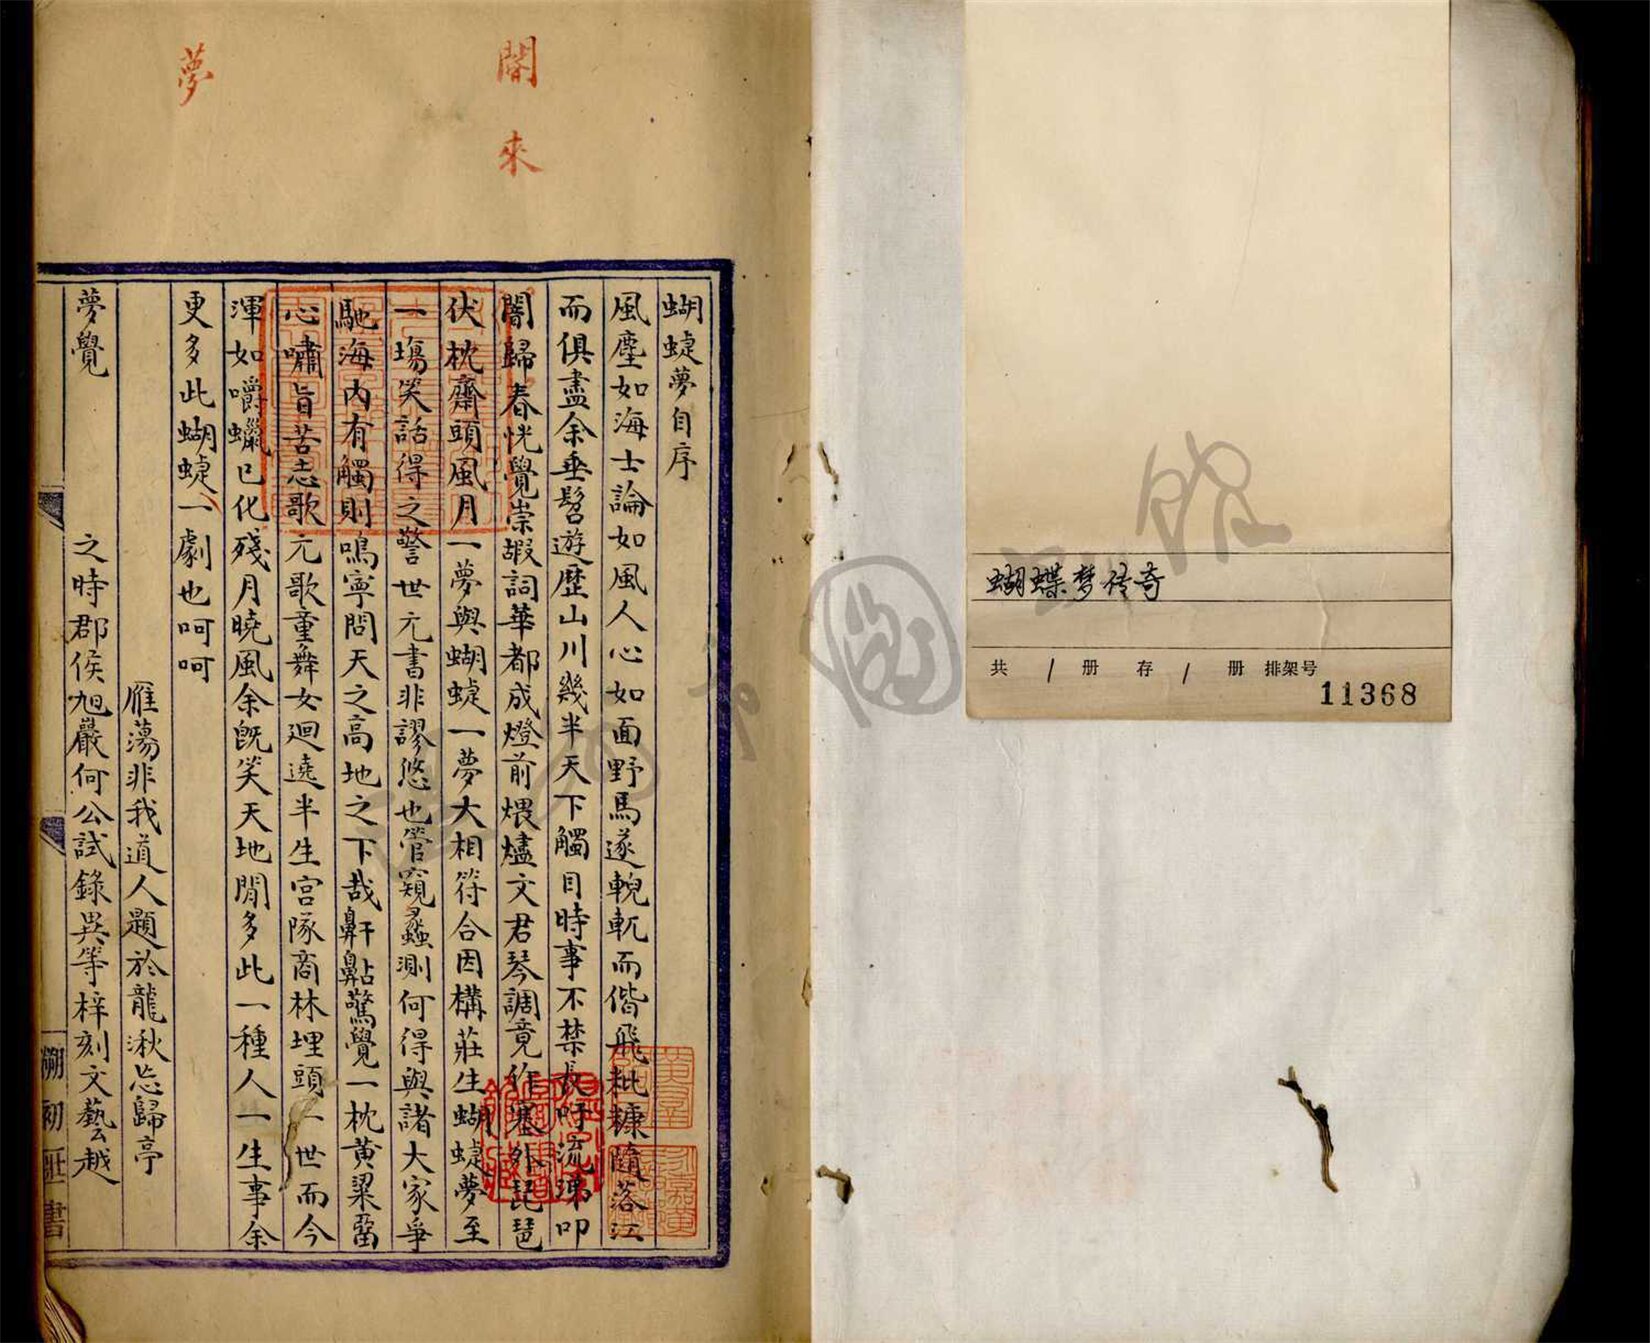 蝴蝶梦传奇
共 1 册 存 1 册 排架号
11368
闇來
夢
蝴蜨夢自序
風塵如海士論如風人心如面野馬遂輗軏而偕飛秕糠隨落江
而俱盡余垂髫遊歷山川幾半天下觸目時事不禁長吁流涕叩
闇歸春恍覺崇嘏詞華都成燈前煨燼文君琴調竟作塞外琵琶
伏枕齋頭風月一夢與蝴蜨一夢大相符合因構莊生蝴蜨夢至
一塲笑話得之警世亢書非謬悠也管窺蠡測何得與諸大家爭
馳海內有觸則鳴寧問天之高地之下哉鼾鼾驚覺一枕黃粱
心嘯旨苦志歌亢歌童舞女廻遶半生宮隊商林埋頭一世而今
渾如嚼蠟已化殘月曉風余既笑天地閒多此一種人一生事余
更多此蝴蜨一劇也呵呵
雁蕩非我道人題於龍湫忘歸亭
夢覺
之時郡侯旭巖何公試錄異等梓刻文藝越
初
書